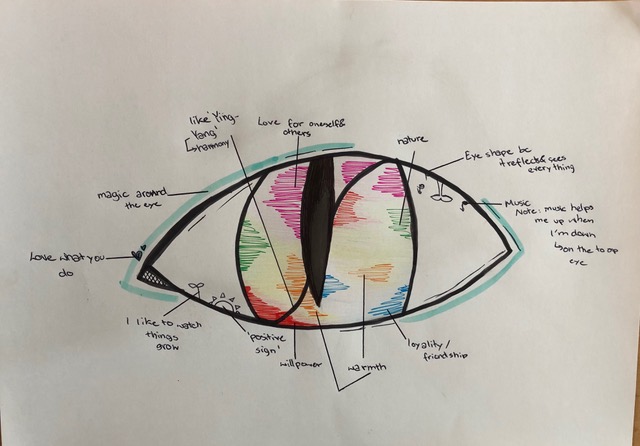 like 'Ying-
Yang'
harmony
Love for oneself &
others
nature
Eye shape bc
it reflects & sees
everything
magic around
the eye
Music
Note: music helps
me up when
I'm down
on the top of
eye
Love what you
do
I like to watch
things
grow
'positive
sign'
willpower
warmth
loyality/
friendship